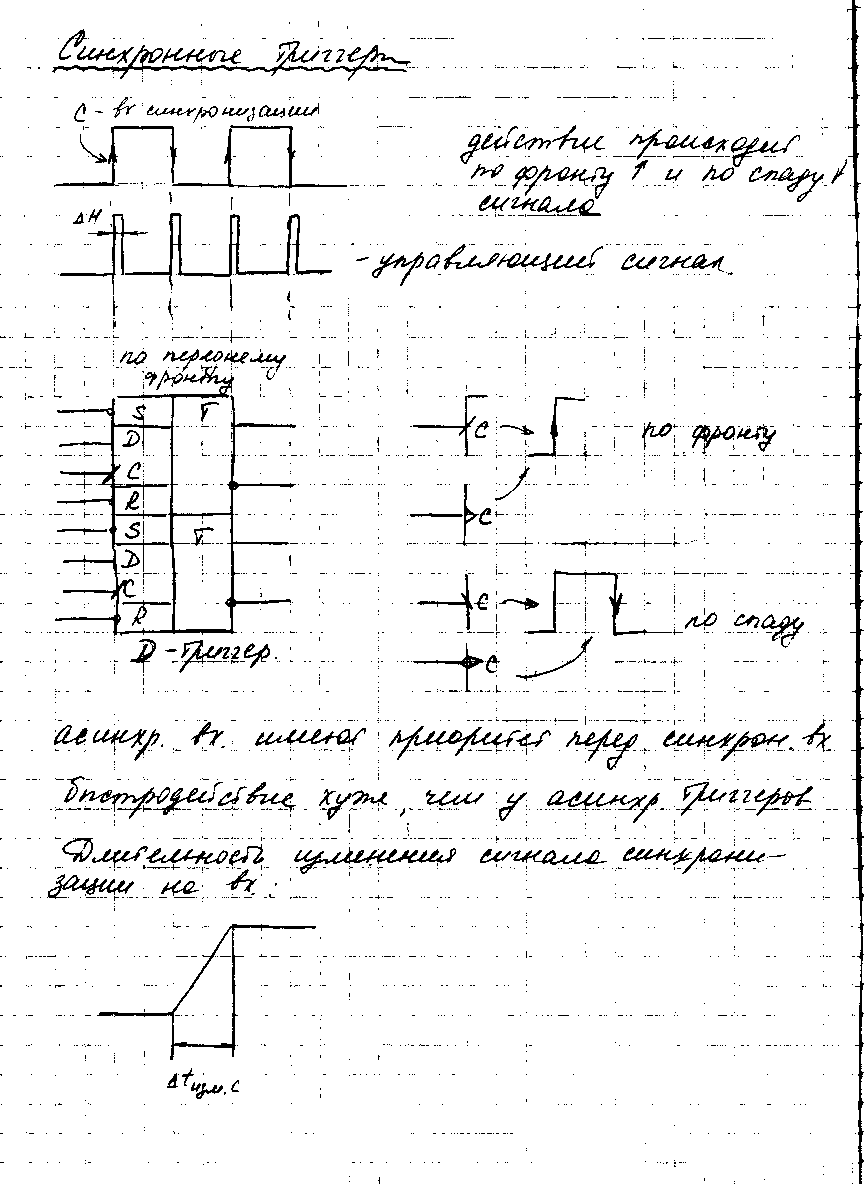 Синхронные триггеры
C - вх синхронизации
действие происходит
по фронту ↑ и по спаду ↓
сигнала
ΔH
- управляющий сигнал
по переднему
фронту
S T
D
C
R
S T
D
C
R
D - триггер.
C
по фронту
C
C
по спаду
C
асинхр. вх. имеют приоритет перед синхрон. вх
быстродействие хуже, чем у асинхр. триггеров
Длительность изменения сигнала синхрони-
зации на вх.:
Δt изм. C